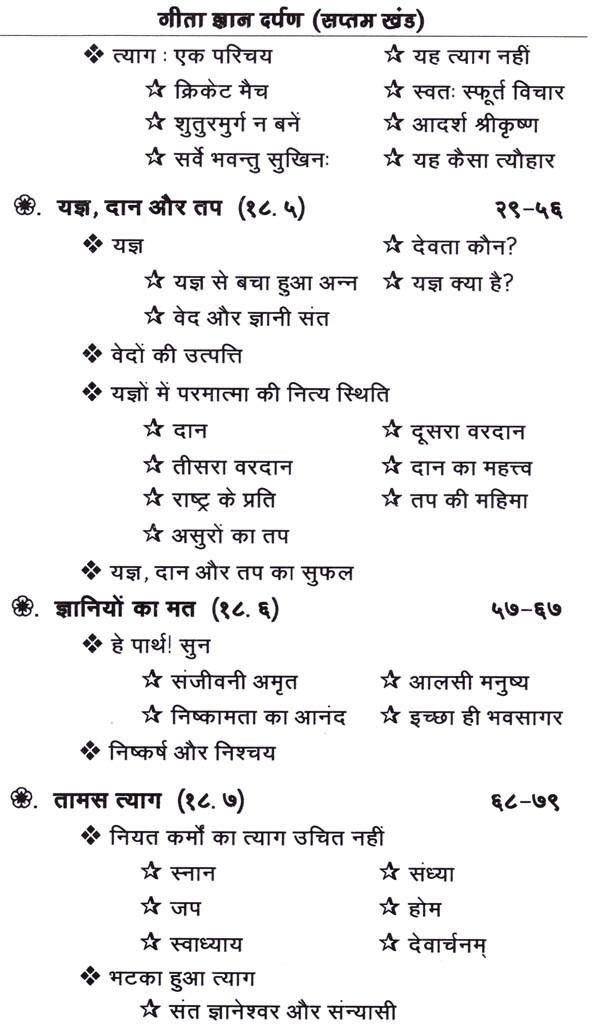 गीता ज्ञान दर्पण (सप्तम खंड)
❖ त्याग : एक परिचय ☆ यह त्याग नहीं
☆ क्रिकेट मैच ☆ स्वतः स्फूर्त विचार
☆ शुतुरमुर्ग न बनें ☆ आदर्श श्रीकृष्ण
☆ सर्वे भवन्तु सुखिनः ☆ यह कैसा त्यौहार
❀. यज्ञ, दान और तप (१८. ५) २९-५६
❖ यज्ञ ☆ देवता कौन?
☆ यज्ञ से बचा हुआ अन्न ☆ यज्ञ क्या है?
☆ वेद और ज्ञानी संत
❖ वेदों की उत्पत्ति
❖ यज्ञों में परमात्मा की नित्य स्थिति
☆ दान ☆ दूसरा वरदान
☆ तीसरा वरदान ☆ दान का महत्त्व
☆ राष्ट्र के प्रति ☆ तप की महिमा
☆ असुरों का तप
❖ यज्ञ, दान और तप का सुफल
❀. ज्ञानियों का मत (१८. ६) ५७-६७
❖ हे पार्थ! सुन
☆ संजीवनी अमृत ☆ आलसी मनुष्य
☆ निष्कामता का आनंद ☆ इच्छा ही भवसागर
❖ निष्कर्ष और निश्चय
❀. तामस त्याग (१८. ७) ६८-७९
❖ नियत कर्मों का त्याग उचित नहीं
☆ स्नान ☆ संध्या
☆ जप ☆ होम
☆ स्वाध्याय ☆ देवार्चनम्
❖ भटका हुआ त्याग
☆ संत ज्ञानेश्वर और संन्यासी